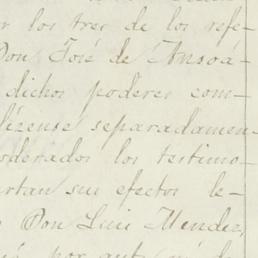 por los tres de los refe-
Don José de Ansoá-
dichos poderes com-
lízense separadamen-
oderados los testimo-
urtan sus efectos le-
Don Luis Mendez,
por